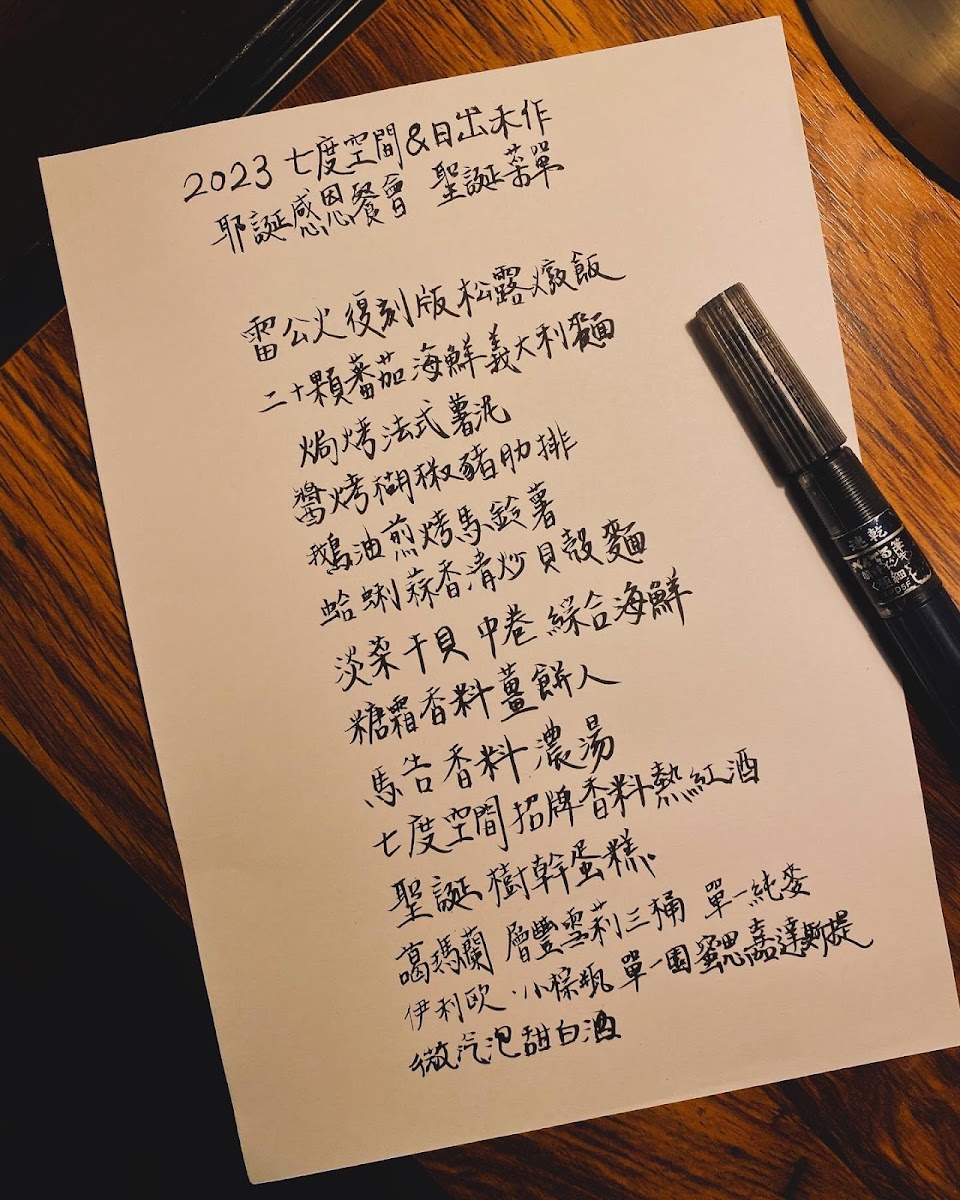 2023 七度空間&日出禾作
耶誕感恩餐會 聖誕菜單
雷公火復刻版松露燉飯
二十顆蕃茄海鮮義大利麵
焗烤法式薯泥
醬烤椒豬肋排
鵝油煎烤馬鈴薯
蛤蜊蒜香清炒貝殼麵
淡菜干貝 中卷 綜合海鮮
糖霜香料薑餅人
馬告香料濃湯
七度空間招牌香料熱紅酒
聖誕樹幹蛋糕
噶瑪蘭 層豐雪莉三桶 單一純麥
伊利歐·小棕瓶 單一園蜜思嘉達斯提
微汽泡甜白酒
速乾